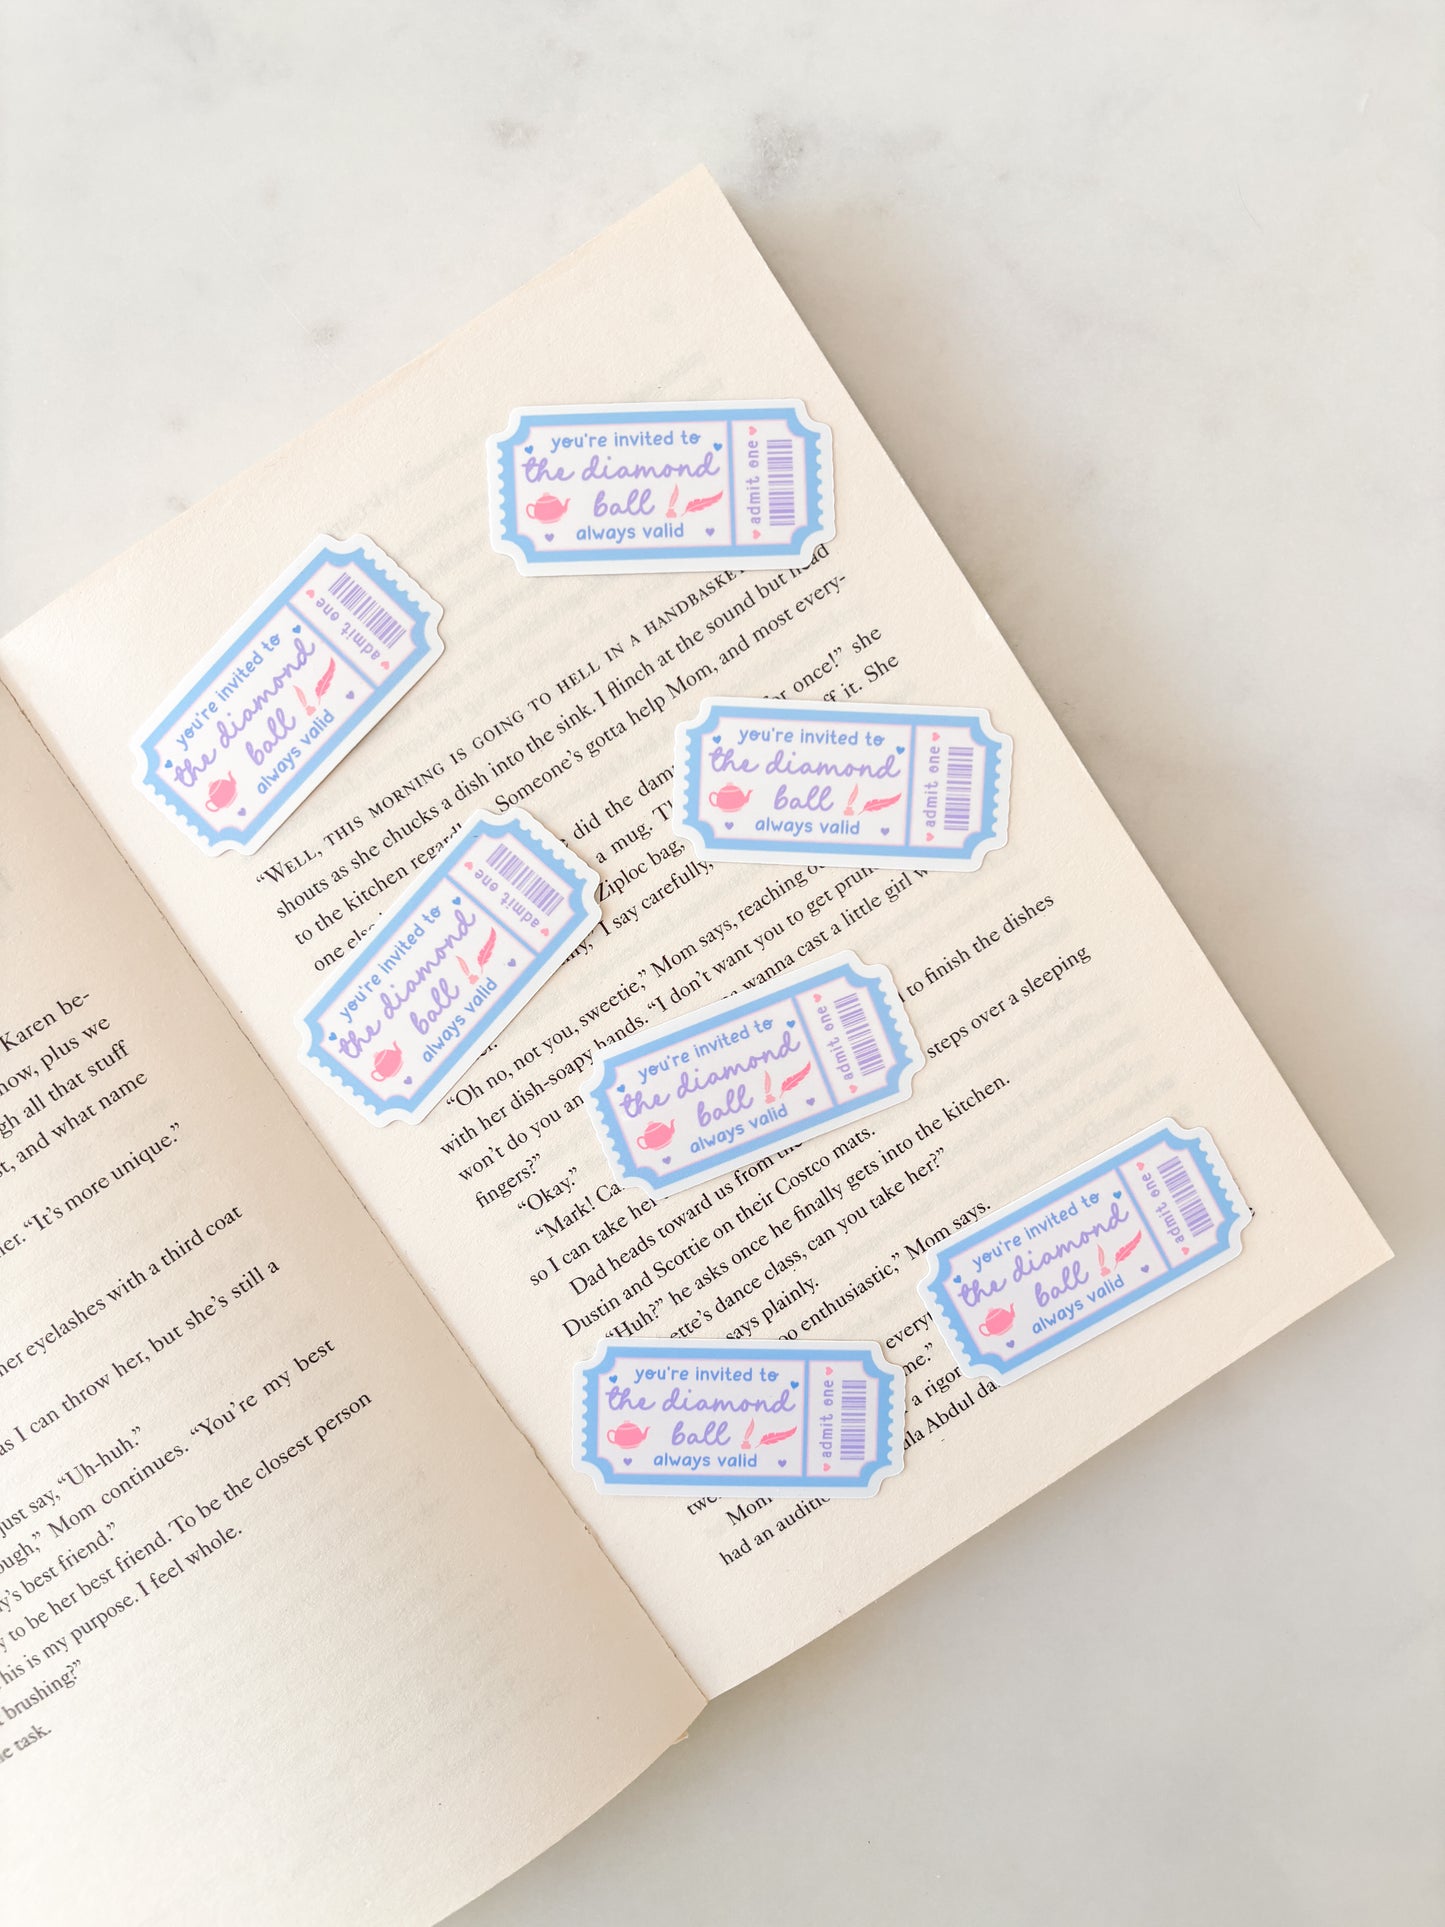 you're invited to
the diamond
ball
always valid
admit one
you're invited to
the diamond
ball
always valid
admit one
you're invited to
the diamond
ball
always valid
admit one
you're invited to
the diamond
ball
always valid
admit one
you're invited to
the diamond
ball
always valid
admit one
you're invited to
the diamond
ball
always valid
admit one
you're invited to
the diamond
ball
always valid
admit one
Karen be-
now, plus we
all that stuff
and what name
“It’s more unique.”
eyelashes with a third coat
as I can throw her, but she’s still a
just say, “Uh-huh.”
Mom continues. “You’re my best
best friend.”
to be her best friend. To be the closest person
is my purpose. I feel whole.
brushing?”
task.
“WELL, THIS MORNING IS GOING TO HELL IN A HANDBASKET
shouts as she chucks a dish into the sink. I flinch at the sound but head
to the kitchen Someone’s gotta help Mom, and most every-
one
did the for once!” she
a mug. it. She
Ziploc bag,
I say carefully,
“Oh no, not you, sweetie,” Mom says, reaching
with her dish-soapy hands. “I don’t want you to get
won’t do you an wanna cast a little girl
fingers?”
“Okay.”
“Mark! to finish the dishes
so I can take
Dad heads toward us from steps over a sleeping
Dustin and Scottie on their Costco mats.
“Huh?” he asks once he finally gets into the kitchen.
dance class, can you take her?”
says plainly.
enthusiastic,” Mom says.
me.”
a
Abdul
Mom
had an